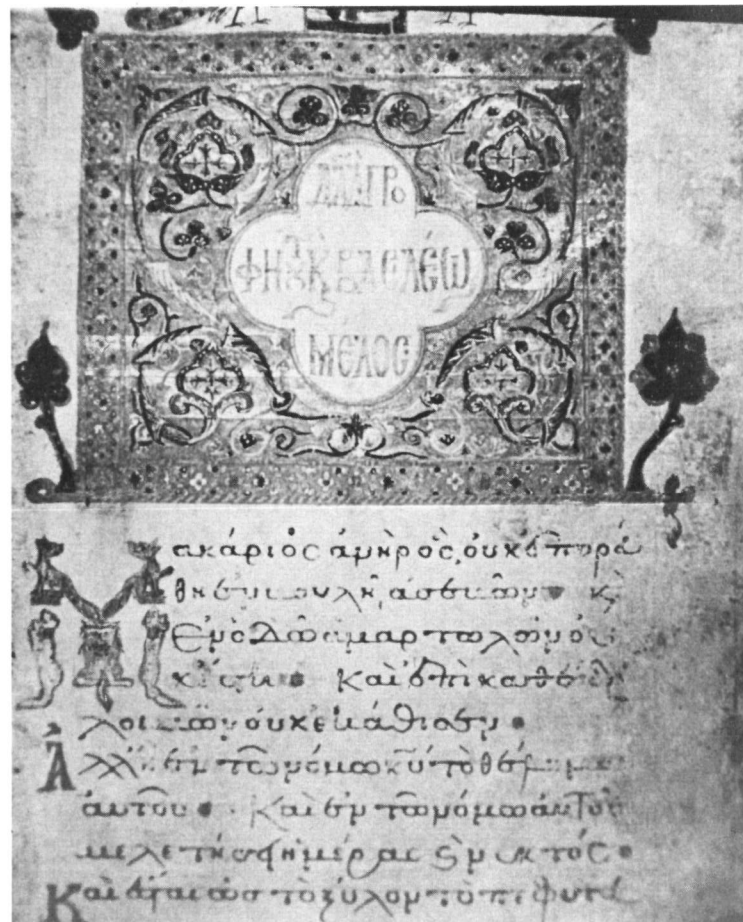 ΜΕΛΟC
Μακάριος ἀνὴρ ὃς οὐκ ἐπορεύ
θη ἐν βουλῇ ἀσεβῶν · κ̀
Ἐν ὁδῷ ἁμαρτωλῶν οὐ
κ ἔστη · Καὶ ἐπὶ καθέδρ
λοιμῶν οὐκ ἐκάθισεν ·
Ἀλλ' ἢ ἐν τῷ νόμῳ κυ τὸ θέλημα
αὐτοῦ · Καὶ ἐν τῷ νόμῳ αὐτοῦ
μελετήσει ἡμέρας ϗ νυκτός ·
Καὶ ἔσται ὡς τὸ ξύλον τὸ πεφυτευ